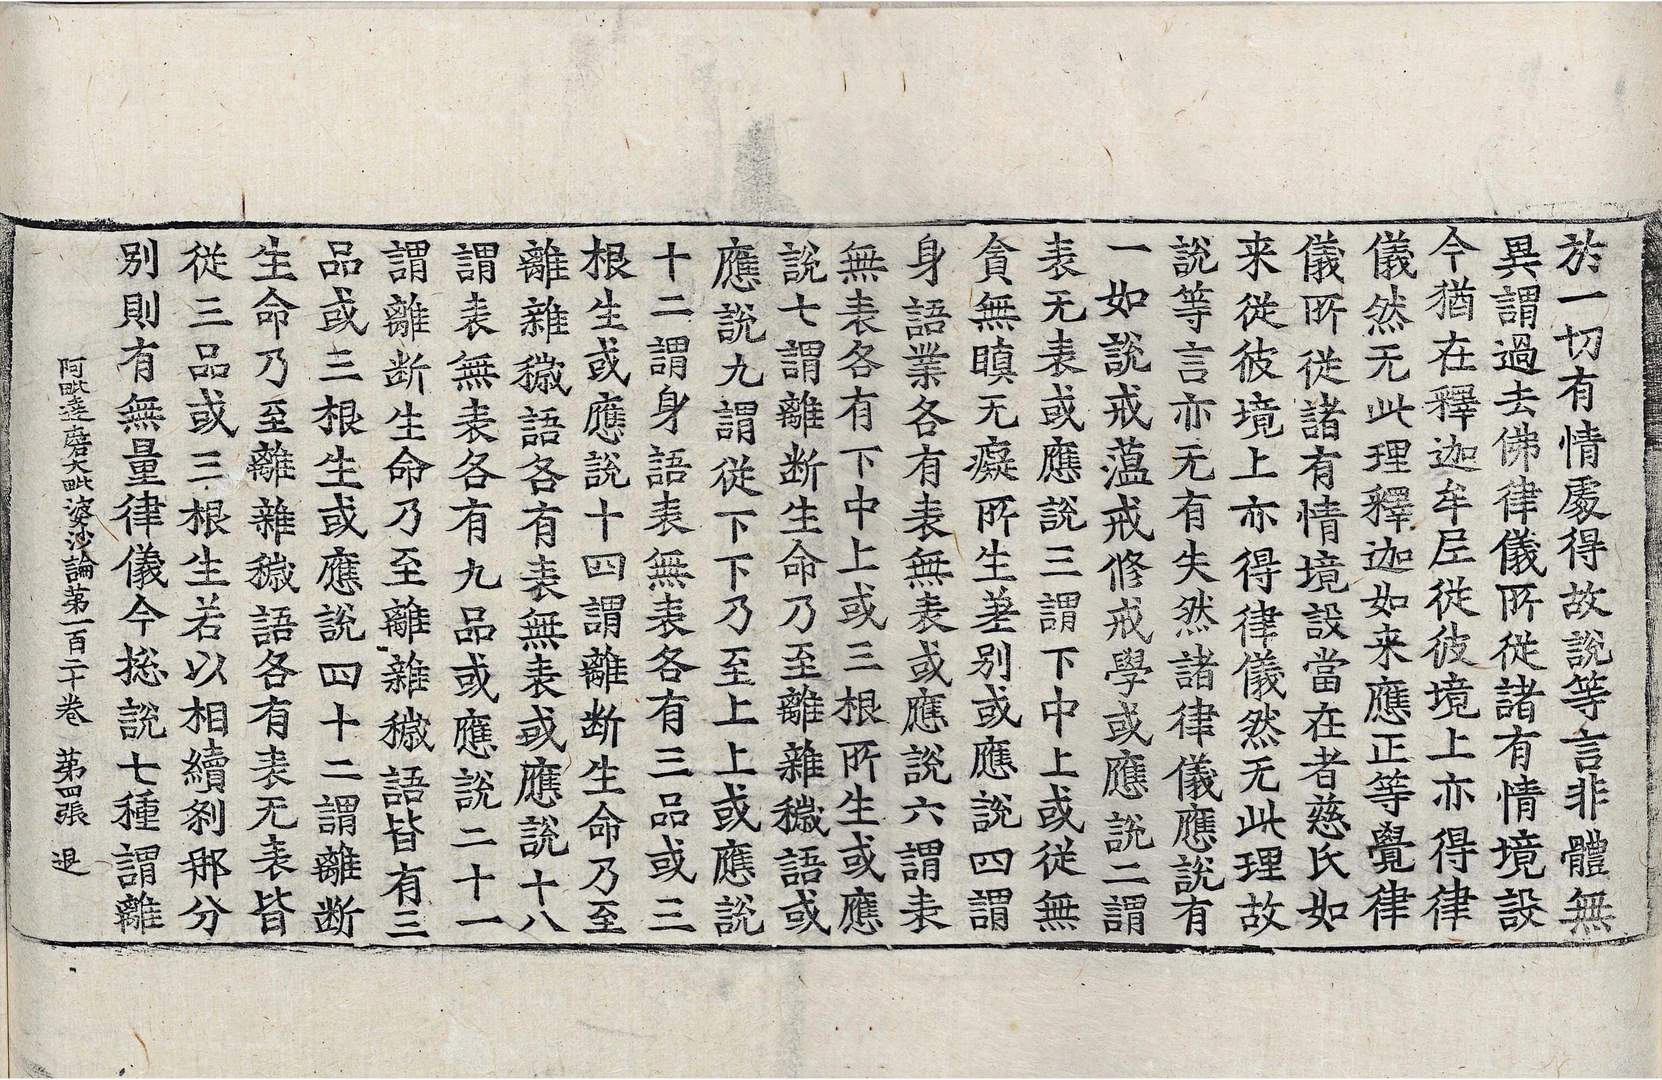 於一切有情處得故說等言非體無
異謂過去佛律儀所從諸有情境設
今猶在釋迦牟尼從彼境上亦得律
儀然无此理釋迦如来應正等覺律
儀所從諸有情境設當在者慈氏如
来從彼境上亦得律儀然无此理故
說等言亦无有失然諸律儀應說有
一如說戒蕰戒修戒學或應說二謂
表无表或應說三謂下中上或從無
貪無瞋无癡所生差別或應說四謂
身語業各有表無表或應說六謂表
無表各有下中上或三根所生或應
說七謂離断生命乃至離雜穢語或
應說九謂從下下乃至上上或應說
十二謂身語表無表各有三品或三
根生或應說十四謂離断生命乃至
離雜穢語各有表無表或應說十八
謂表無表各有九品或應說二十一
謂離断生命乃至離雜穢語皆有三
品或三根生或應說四十二謂離断
生命乃至離雜穢語各有表无表皆
從三品或三根生若以相續剎那分
別則有無量律儀今揔說七種謂離
阿毗達磨大毗婆沙論第一百二十卷 第四張 退